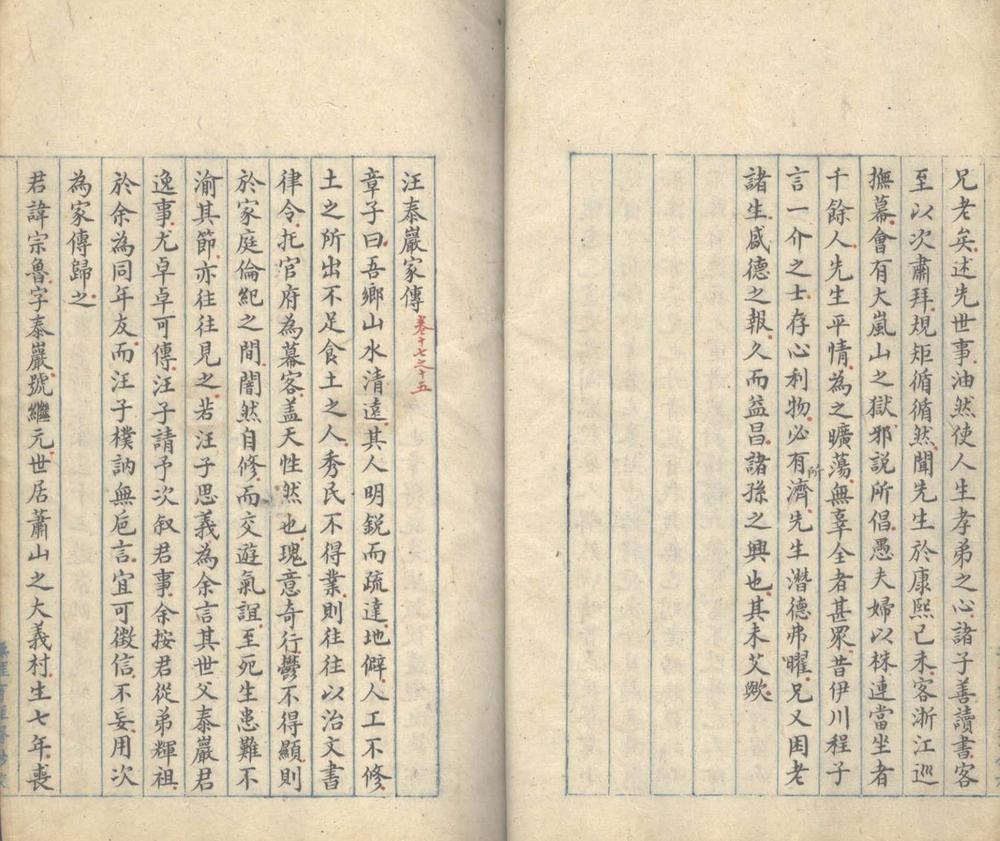 兄老矣述先世事油然使人生孝弟之心諸子善讀書客
至以次肅拜規矩循循然聞先生於康熙己未客浙江巡
撫幕會有大嵐山之獄邪說所倡愚夫婦以株連當坐者
千餘人先生平情為之曠蕩無辜全者甚眾昔伊川程子
言一介之士存心利物必有所濟先生潛德弗曜兄又困老
諸生感德之報久而益昌諸孫之興也其未艾歟
汪泰巖家傳 卷十七之十五
章子曰吾鄉山水清遠其人明銳而疏達地僻人工不修
土之所出不足食土之人秀民不得業則往往以治文書
律令托官府為幕客盖天性然也瑰意奇行鬱不得顯則
於家庭倫紀之間闇然自修而交遊氣誼至死生患難不
渝其節亦往往見之若汪子思義為余言其世父泰巖君
逸事尤卓卓可傳汪子請予次叙君事余按君從弟輝祖
於余為同年友而汪子樸訥無卮言宜可徵信不妄用次
為家傳歸之
君諱宗魯字泰巖號繼元世居蕭山之大義村生七年喪